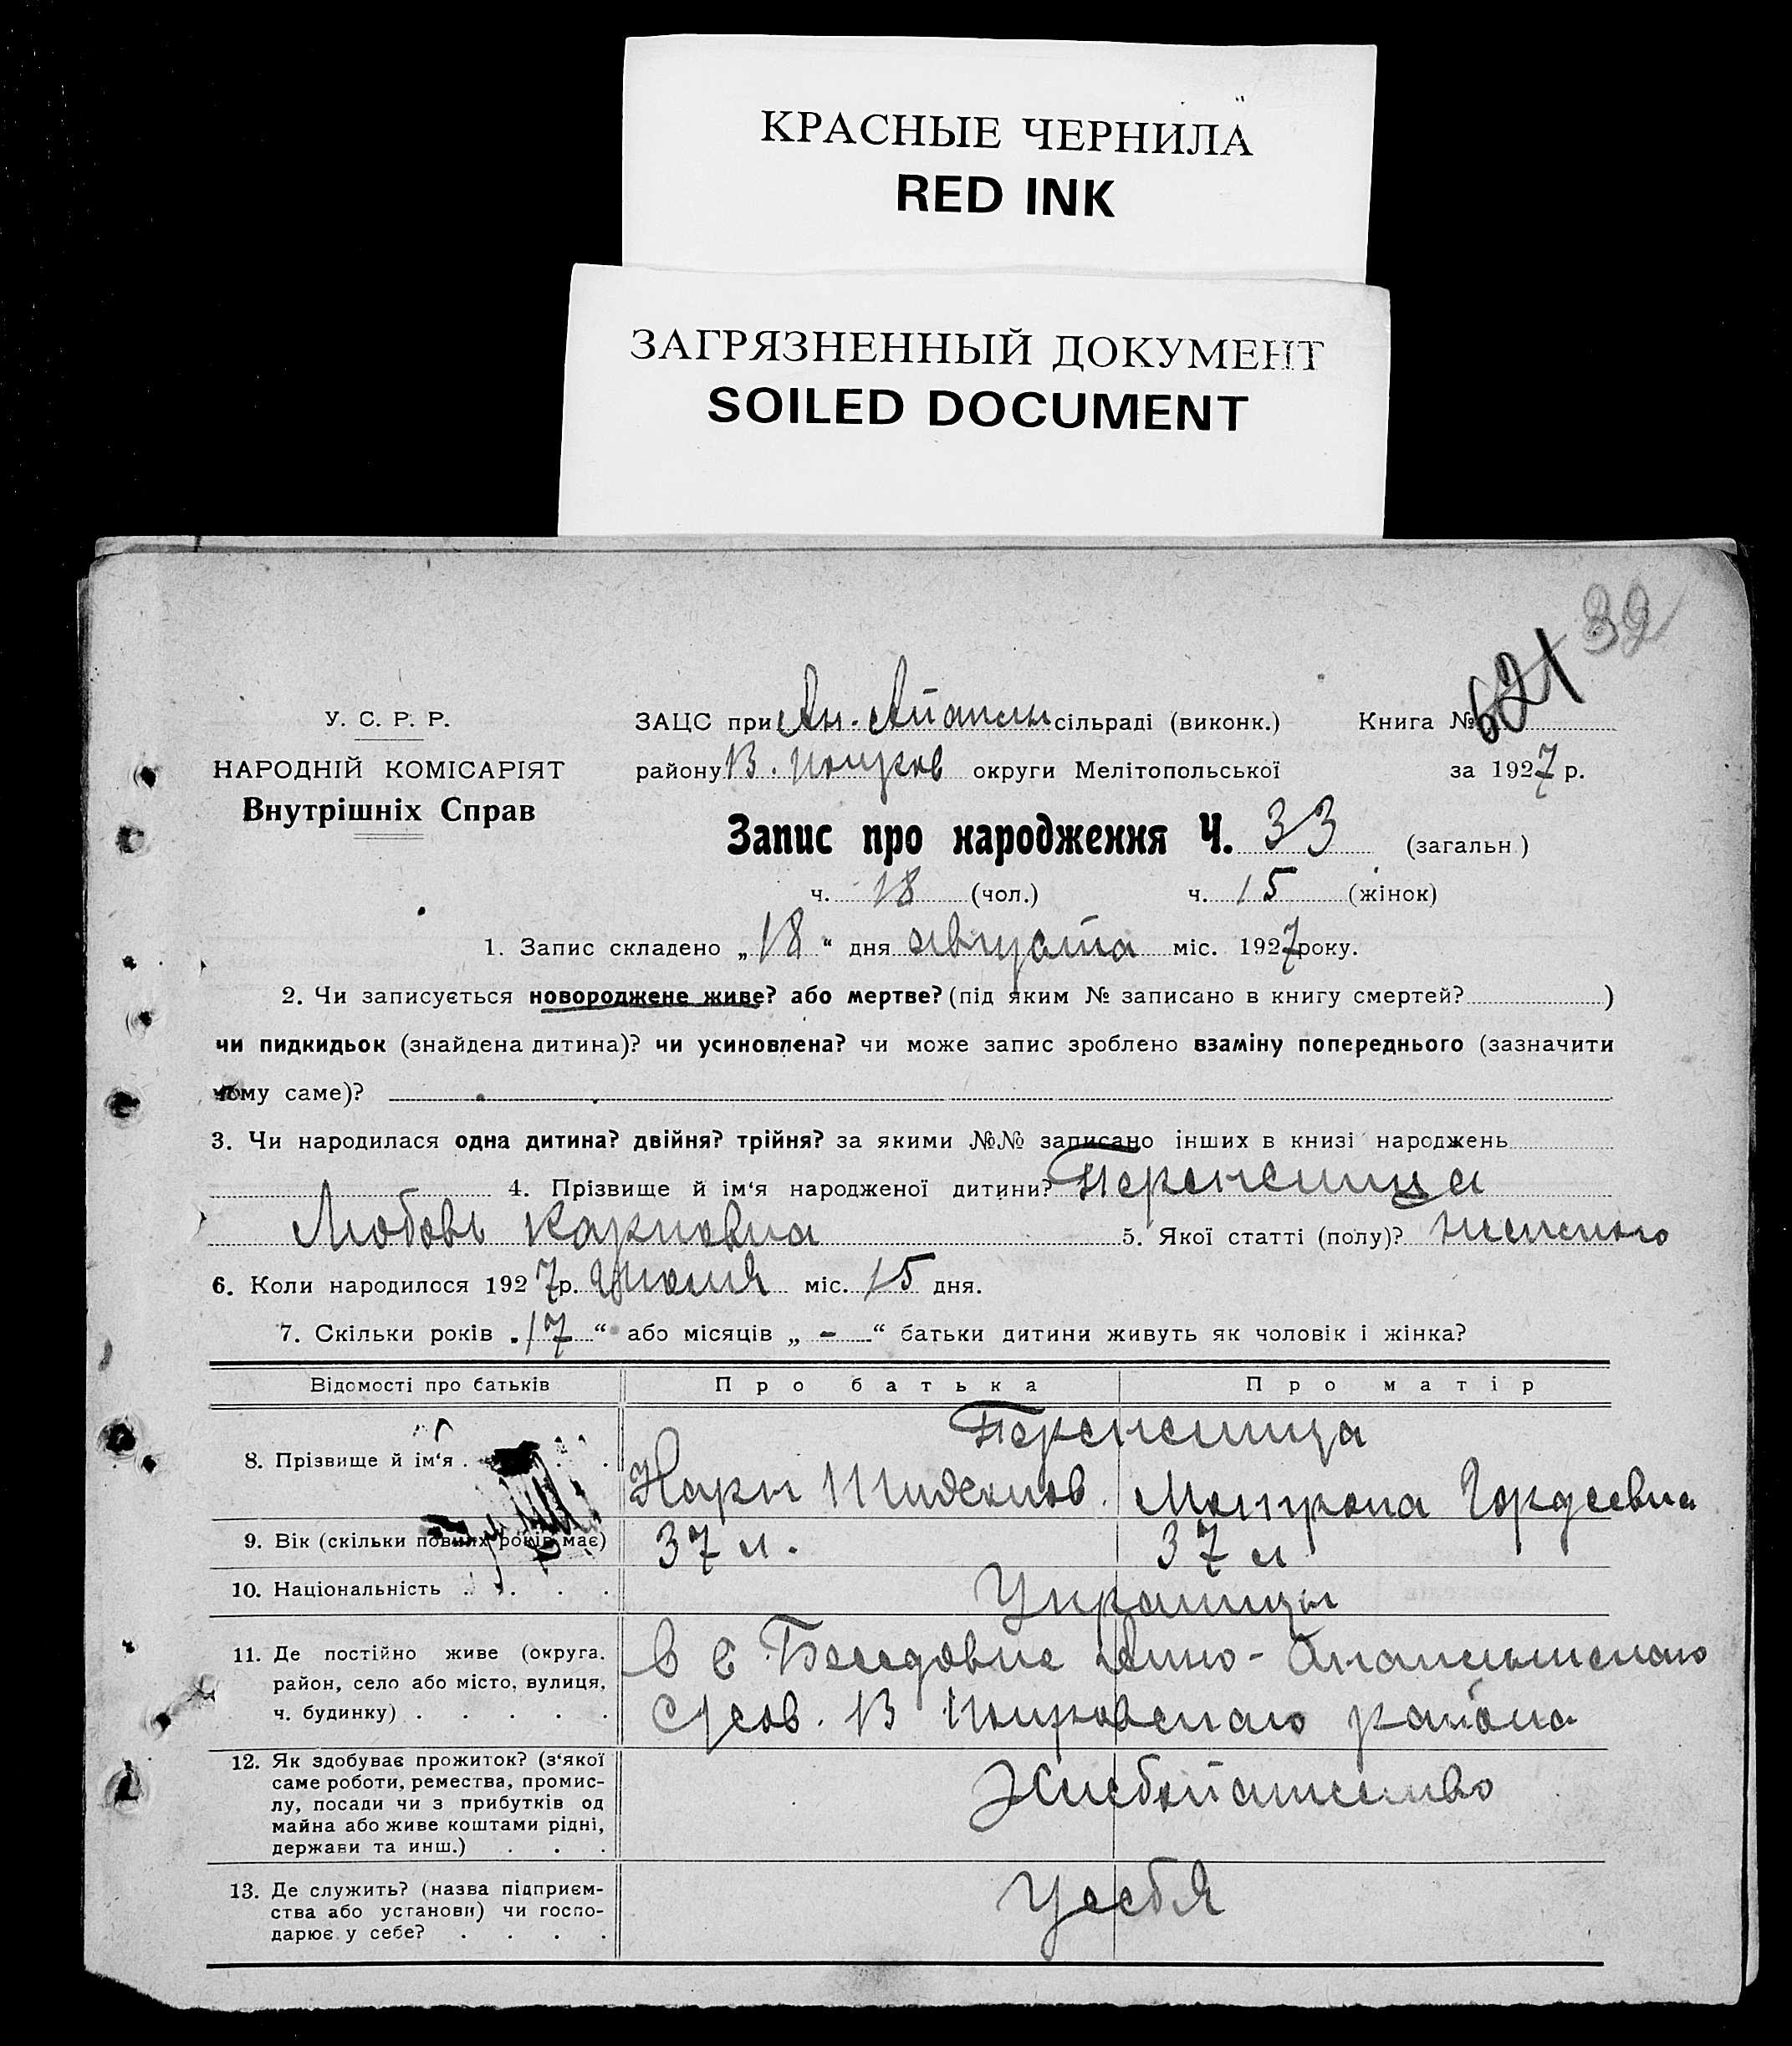 КРАСНЫЕ ЧЕРНИЛА
RED INK
ЗАГРЯЗНЕННЫЙ ДОКУМЕНТ
SOILED DOCUMENT
32
621
У. С. Р. Р.
НАРОДНІЙ КОМІСАРІЯТ
Внутрішніх Справ
ЗАЦС при Ан. сільраді (виконк.) Книга №
району В. Покров округи Мелітопольської за 1927 р.
Запис про народження Ч. 33 (загальн.)
ч. 18 (чол.) ч. 15 (жінок)
1. Запис складено „18“ дня августа міс. 1927 року.
2. Чи записується новороджене живе? або мертве? (під яким № записано в книгу смертей? )
чи пидкидьок (знайдена дитина)? чи усиновлена? чи може запис зроблено взаміну попереднього (зазначити
чому саме)?
3. Чи народилася одна дитина? двійня? трійня? за якими №№ записано інших в книзі народжень
4. Прізвище й ім‘я народженої дитини? Перепелица
Любовь Карповна 5. Якої статті (полу)? женского
6. Коли народилося 1927 р. Июля міс. 15 дня.
7. Скільки років „17“ або місяців „ - “ батьки дитини живуть як чоловік і жінка?
Відомості про батьків Про батька Про матір
Перепелица
8. Прізвище й ім‘я . . . . Карп Мотрона Гордеевна
9. Вік (скільки повних років має) 37 л. 37 л
10. Національність . . . . Украинцы
11. Де постійно живе (округа, район, село або місто, вулиця, ч. будинку) . . . . .
в с. Беседовке Анно-
Сусов. В Покровского района
12. Як здобуває прожиток? (з‘якої саме роботи, ремества, промислу, посади чи з прибутків од майна або живе коштами рідні, держави та инш.) . . .
Хлебопашество
13. Де служить? (назва підприємства або установи) чи господарює у себе? . . . .
У себя